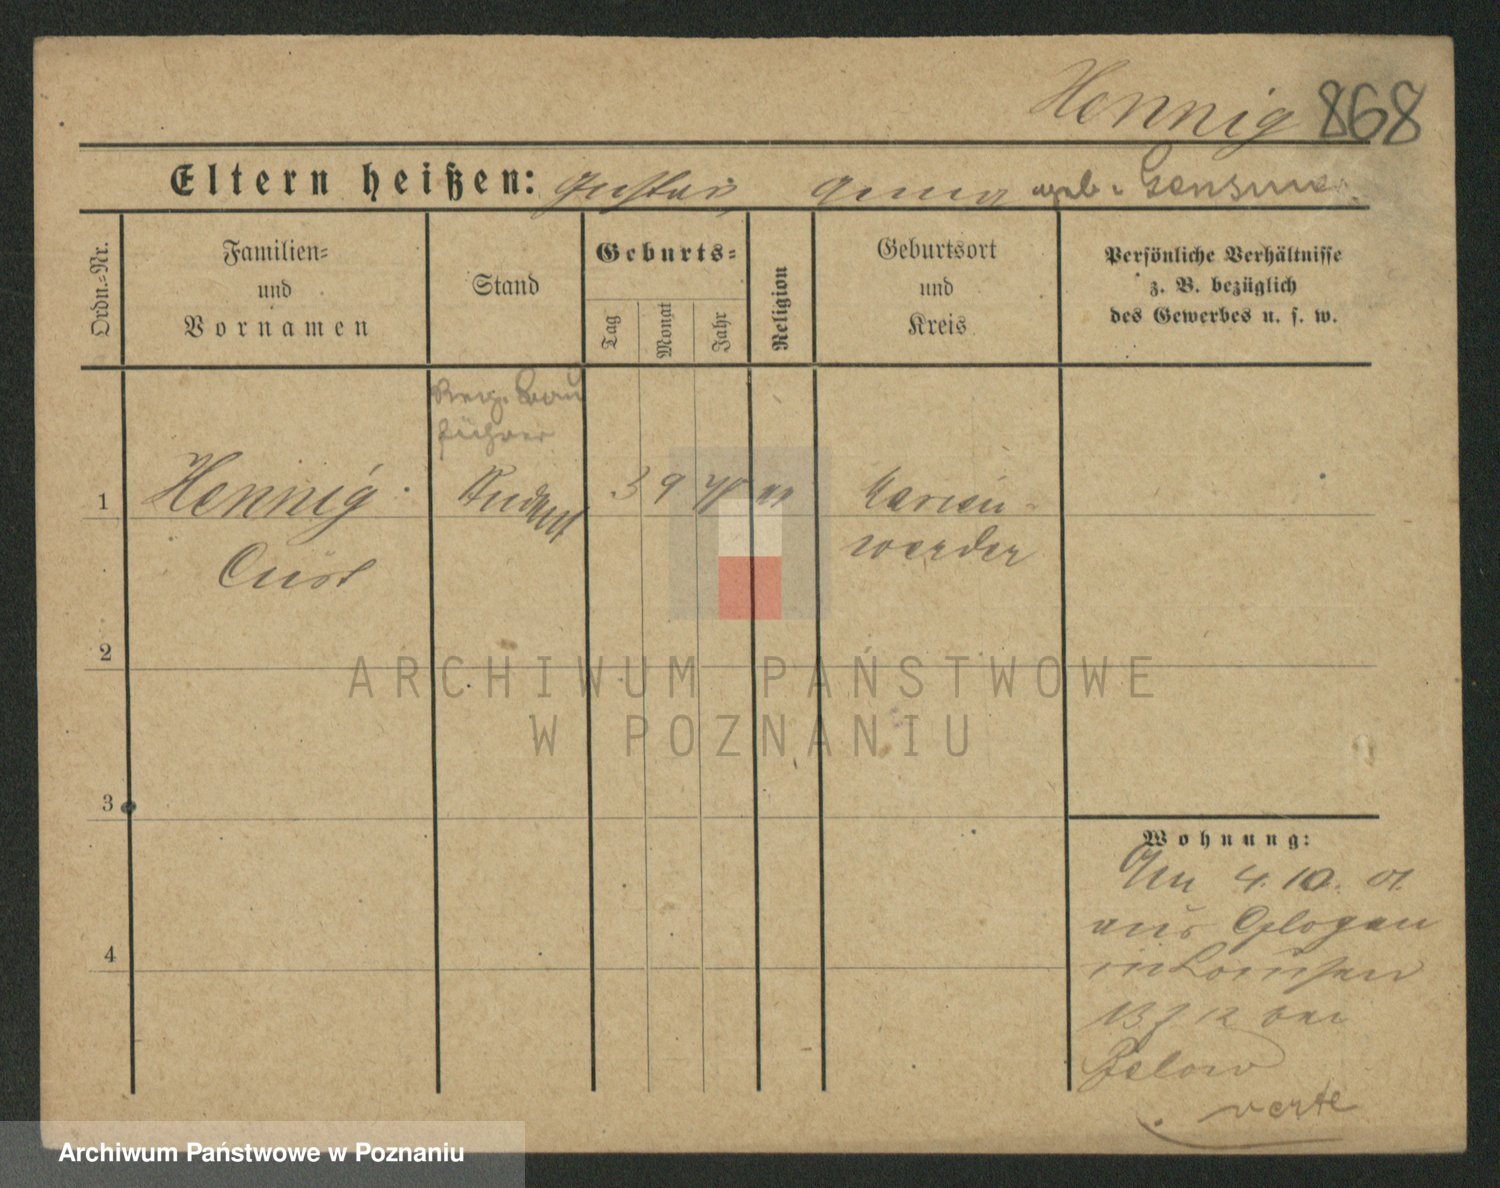 Hennig 868
Eltern heißen: Gustav, Anna geb.
Ordn.-Nr.
Familien-
und
Vornamen
Stand
Geburts-
Tag
Monat
Jahr
Religion
Geburtsort
und
Kreis
Persönliche Verhältnisse
z. B. bezüglich
des Gewerbes u. s. w.
Reg. Bau
führer
1 Hennig Student 3 9 ev Marien-
werder
2
3
4
Wohnung:
4. 10. 01.
aus Glogau
in
bei
verte
ARCHIWUM PAŃSTWOWE
W POZNANIU
Archiwum Państwowe w Poznaniu